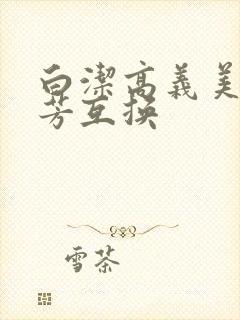 白潔高義美
芳互换
雪茶